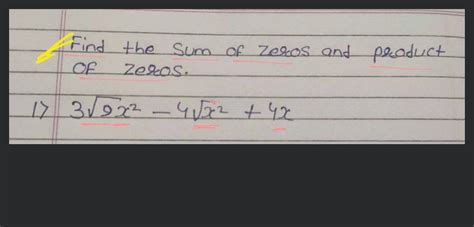 Find the sum of zeros and product
of zeros.
1) 3√9x² - 4√x² + 4x